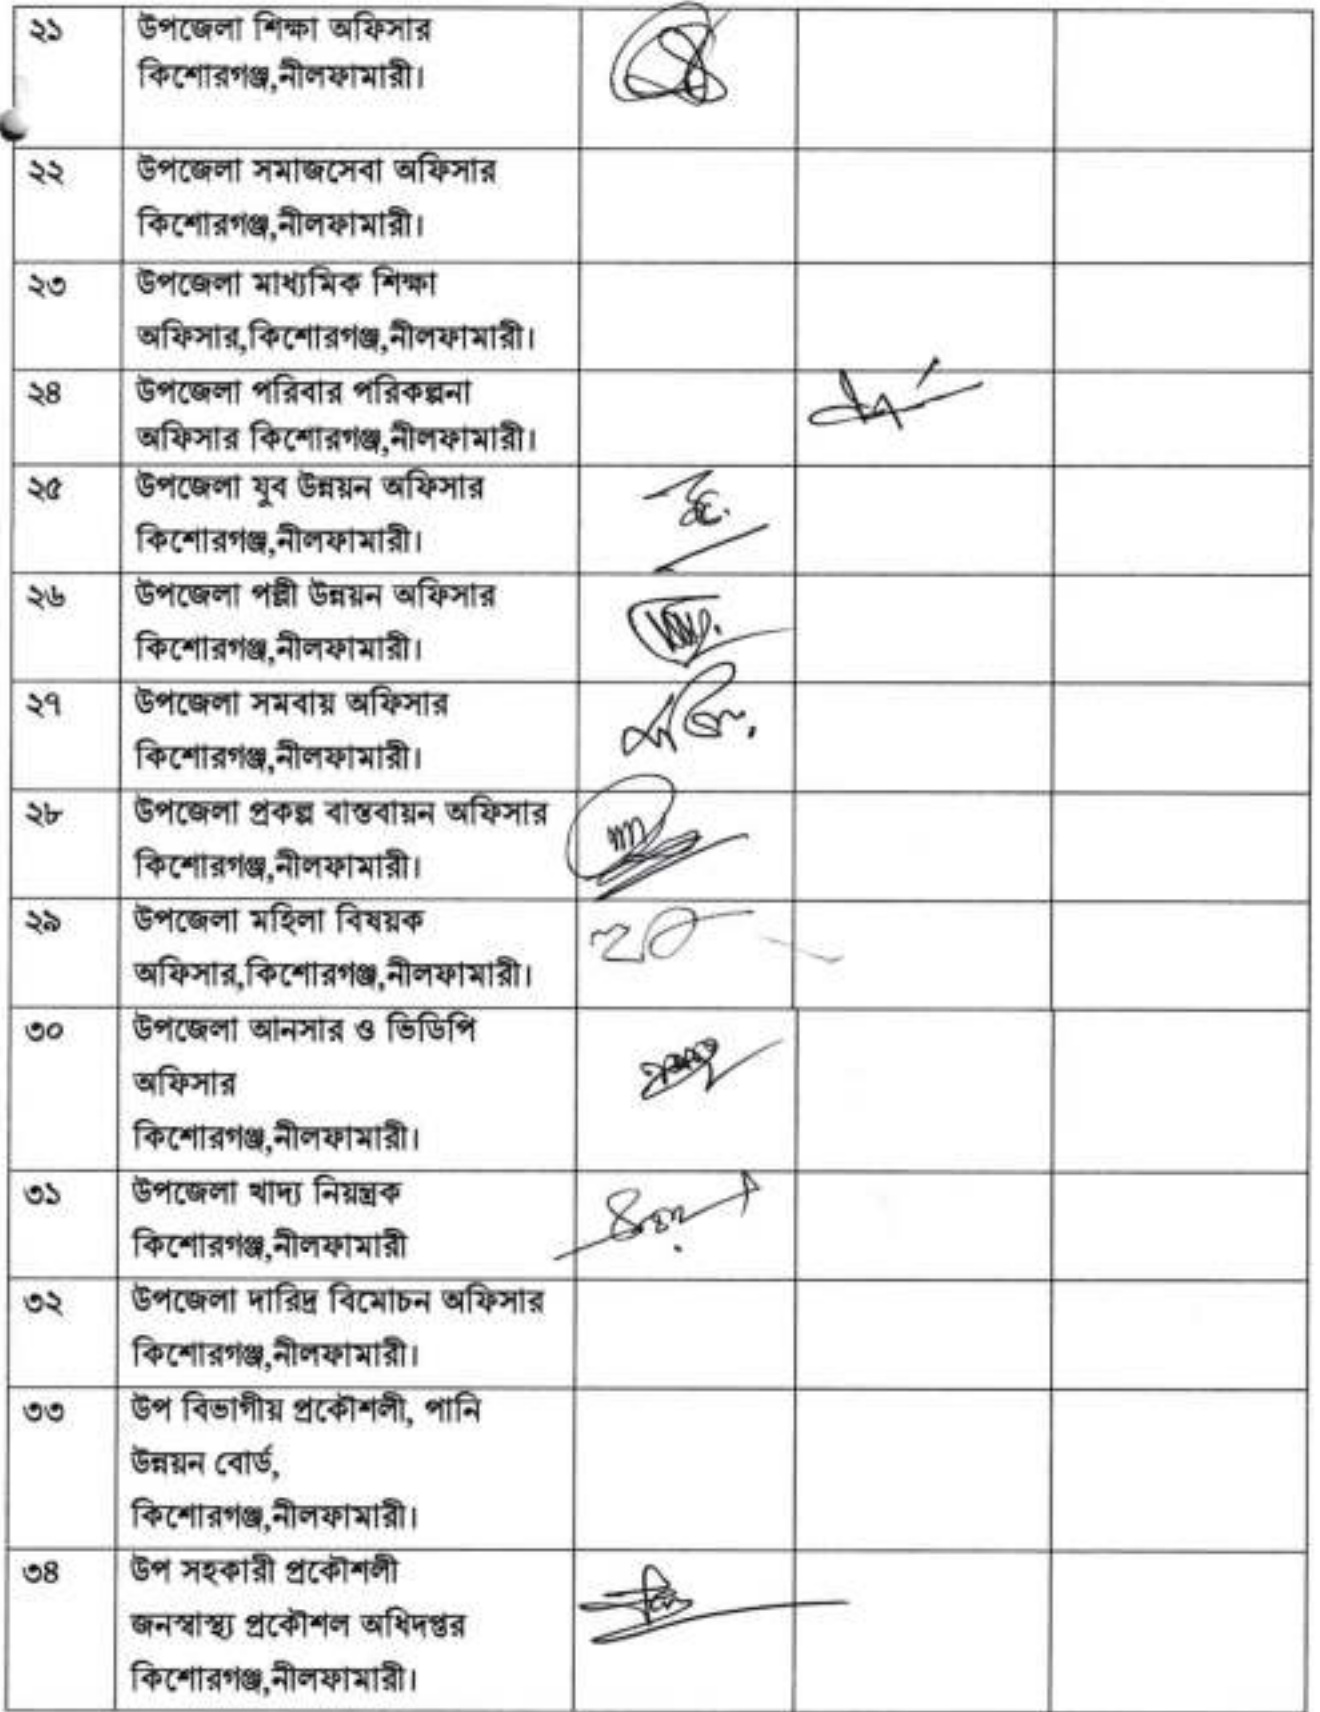 ২১ উপজেলা শিক্ষা অফিসার
কিশোরগঞ্জ,নীলফামারী।
২২ উপজেলা সমাজসেবা অফিসার
কিশোরগঞ্জ,নীলফামারী।
২৩ উপজেলা মাধ্যমিক শিক্ষা
অফিসার,কিশোরগঞ্জ,নীলফামারী।
২৪ উপজেলা পরিবার পরিকল্পনা
অফিসার কিশোরগঞ্জ,নীলফামারী।
২৫ উপজেলা যুব উন্নয়ন অফিসার
কিশোরগঞ্জ,নীলফামারী।
২৬ উপজেলা পল্লী উন্নয়ন অফিসার
কিশোরগঞ্জ,নীলফামারী।
২৭ উপজেলা সমবায় অফিসার
কিশোরগঞ্জ,নীলফামারী।
২৮ উপজেলা প্রকল্প বাস্তবায়ন অফিসার
কিশোরগঞ্জ,নীলফামারী।
২৯ উপজেলা মহিলা বিষয়ক
অফিসার,কিশোরগঞ্জ,নীলফামারী।
৩০ উপজেলা আনসার ও ভিডিপি
অফিসার
কিশোরগঞ্জ,নীলফামারী।
৩১ উপজেলা খাদ্য নিয়ন্ত্রক
কিশোরগঞ্জ,নীলফামারী
৩২ উপজেলা দারিদ্র বিমোচন অফিসার
কিশোরগঞ্জ,নীলফামারী।
৩৩ উপ বিভাগীয় প্রকৌশলী, পানি
উন্নয়ন বোর্ড,
কিশোরগঞ্জ,নীলফামারী।
৩৪ উপ সহকারী প্রকৌশলী
জনস্বাস্থ্য প্রকৌশল অধিদপ্তর
কিশোরগঞ্জ,নীলফামারী।